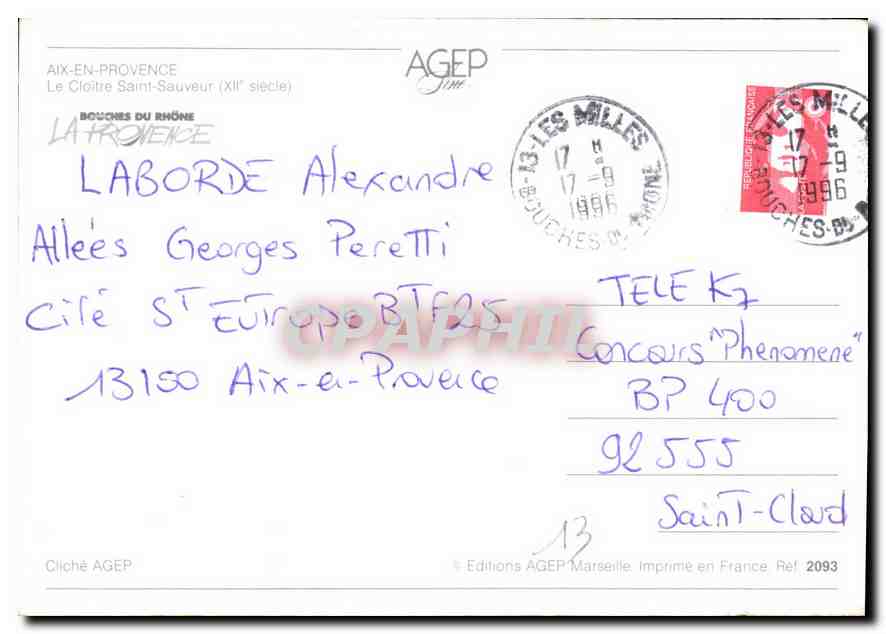 AIX-EN-PROVENCE
Le Cloître Saint-Sauveur (XIIe siècle)
AGEP
BOUCHES DU RHÔNE
LA PROVENCE
13-LES MILLES
17 H
17-9
1996
BOUCHES-DU-RHONE
REPUBLIQUE FRANCAISE
13-LES MILLES
17 H
17-9
1996
BOUCHES-DU-
LABORDE Alexandre
Allées Georges Peretti
Cité ST EUTrope BT F25
13100 Aix-en-Provence
TELE K7
Concours "Phenomene"
BP 400
92555
SainT-Cloud
13
CPAPHIL
Cliché AGEP
© Editions AGEP Marseille. Imprimé en France. Ref. 2093